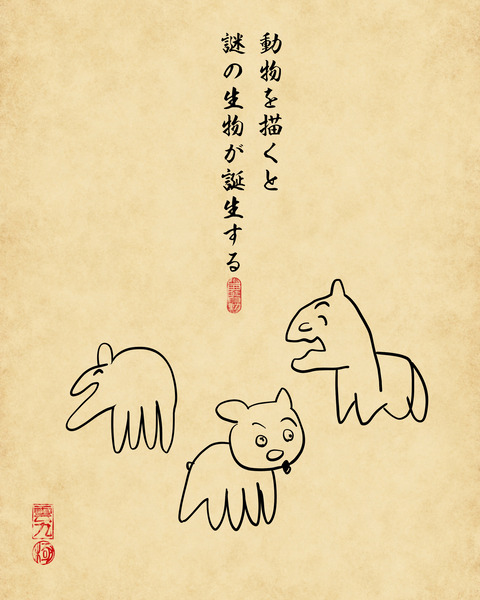 動物を描くと
謎の生物が誕生する